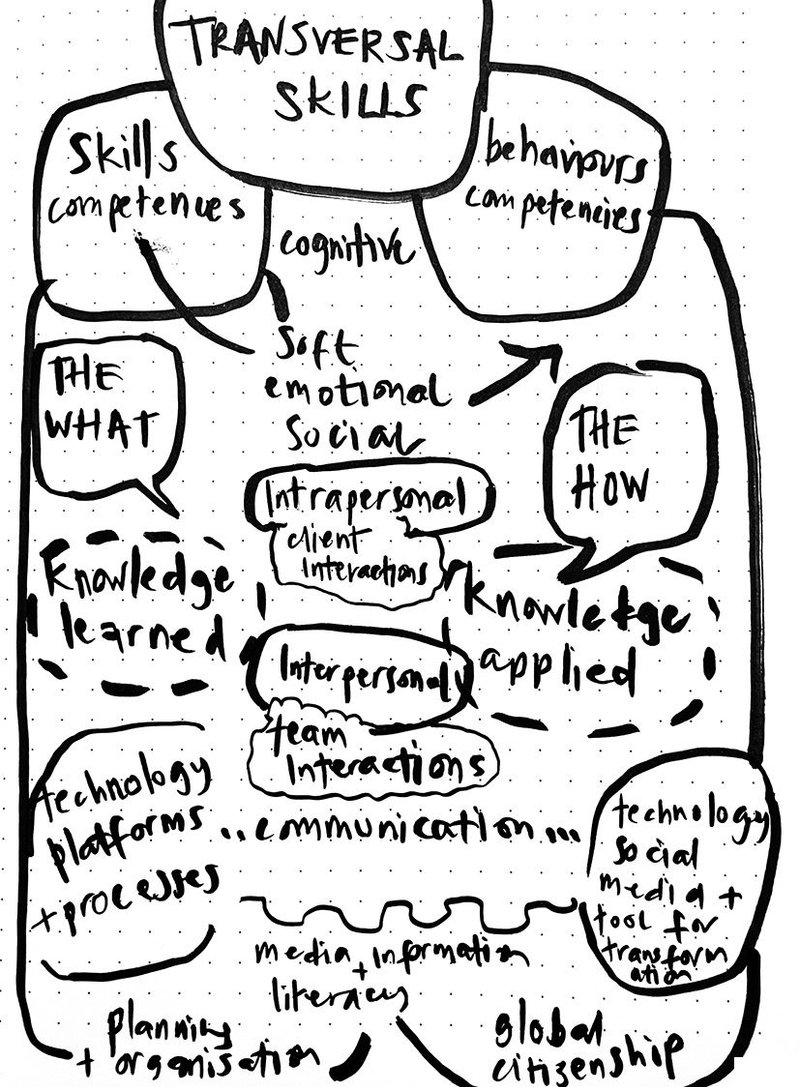 TRANSVERSAL
SKILLS
Skills
competences
behaviours
competencies
cognitive
Soft
emotional
social
THE
WHAT
THE
HOW
Intrapersonal
client
interactions
Knowledge
learned
knowledge
applied
Interpersonal
team
interactions
technology
platforms
+ processes
..communication...
technology
social
media +
tool for
transform
ation
media + information
literacy
planning
+ organisation
global
citizenship